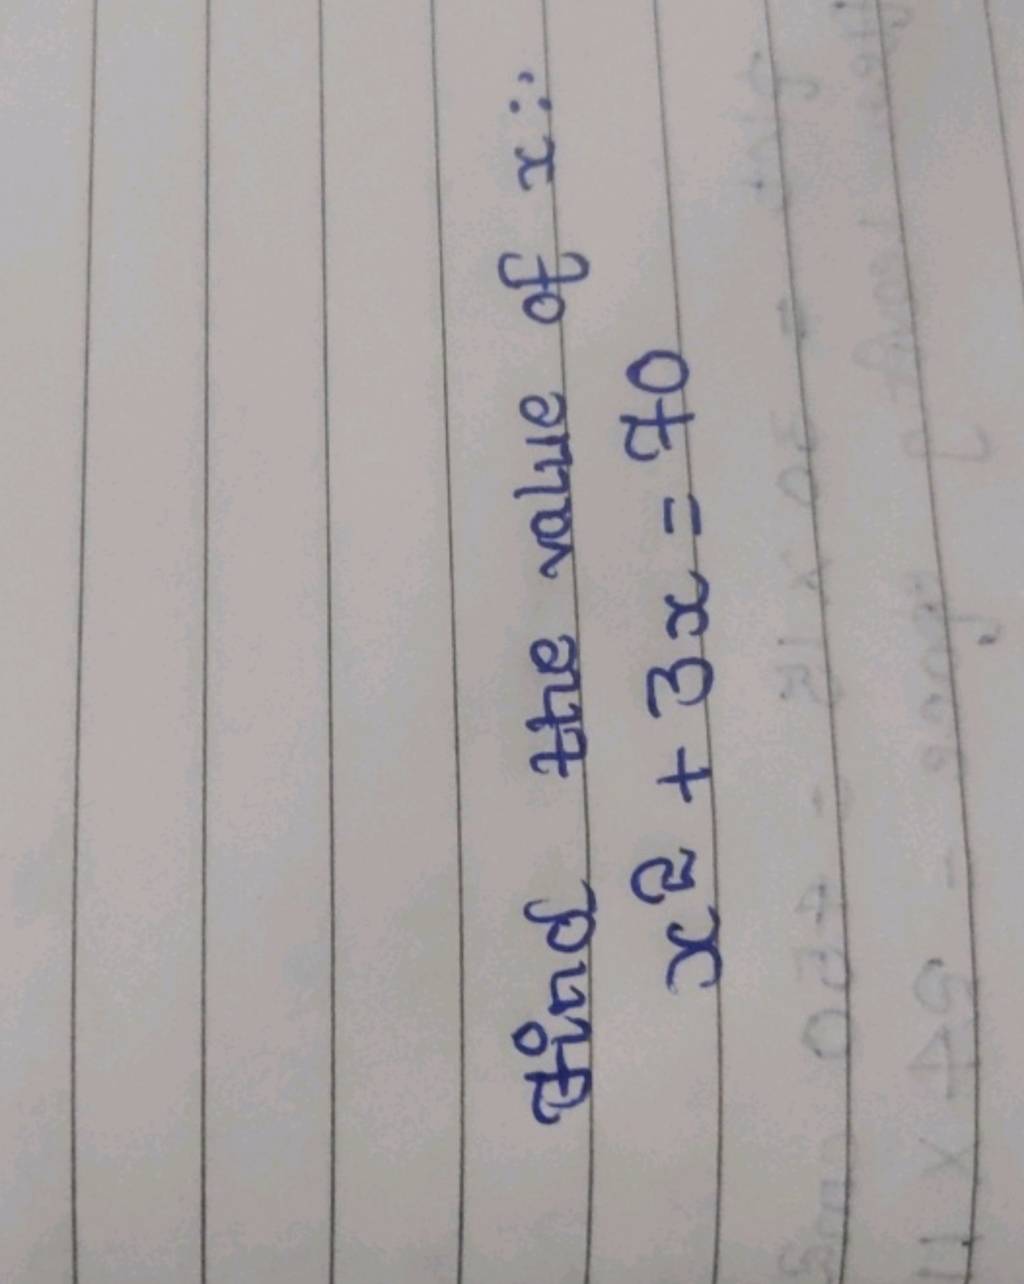 Find the value of x :-
x² + 3x = 70